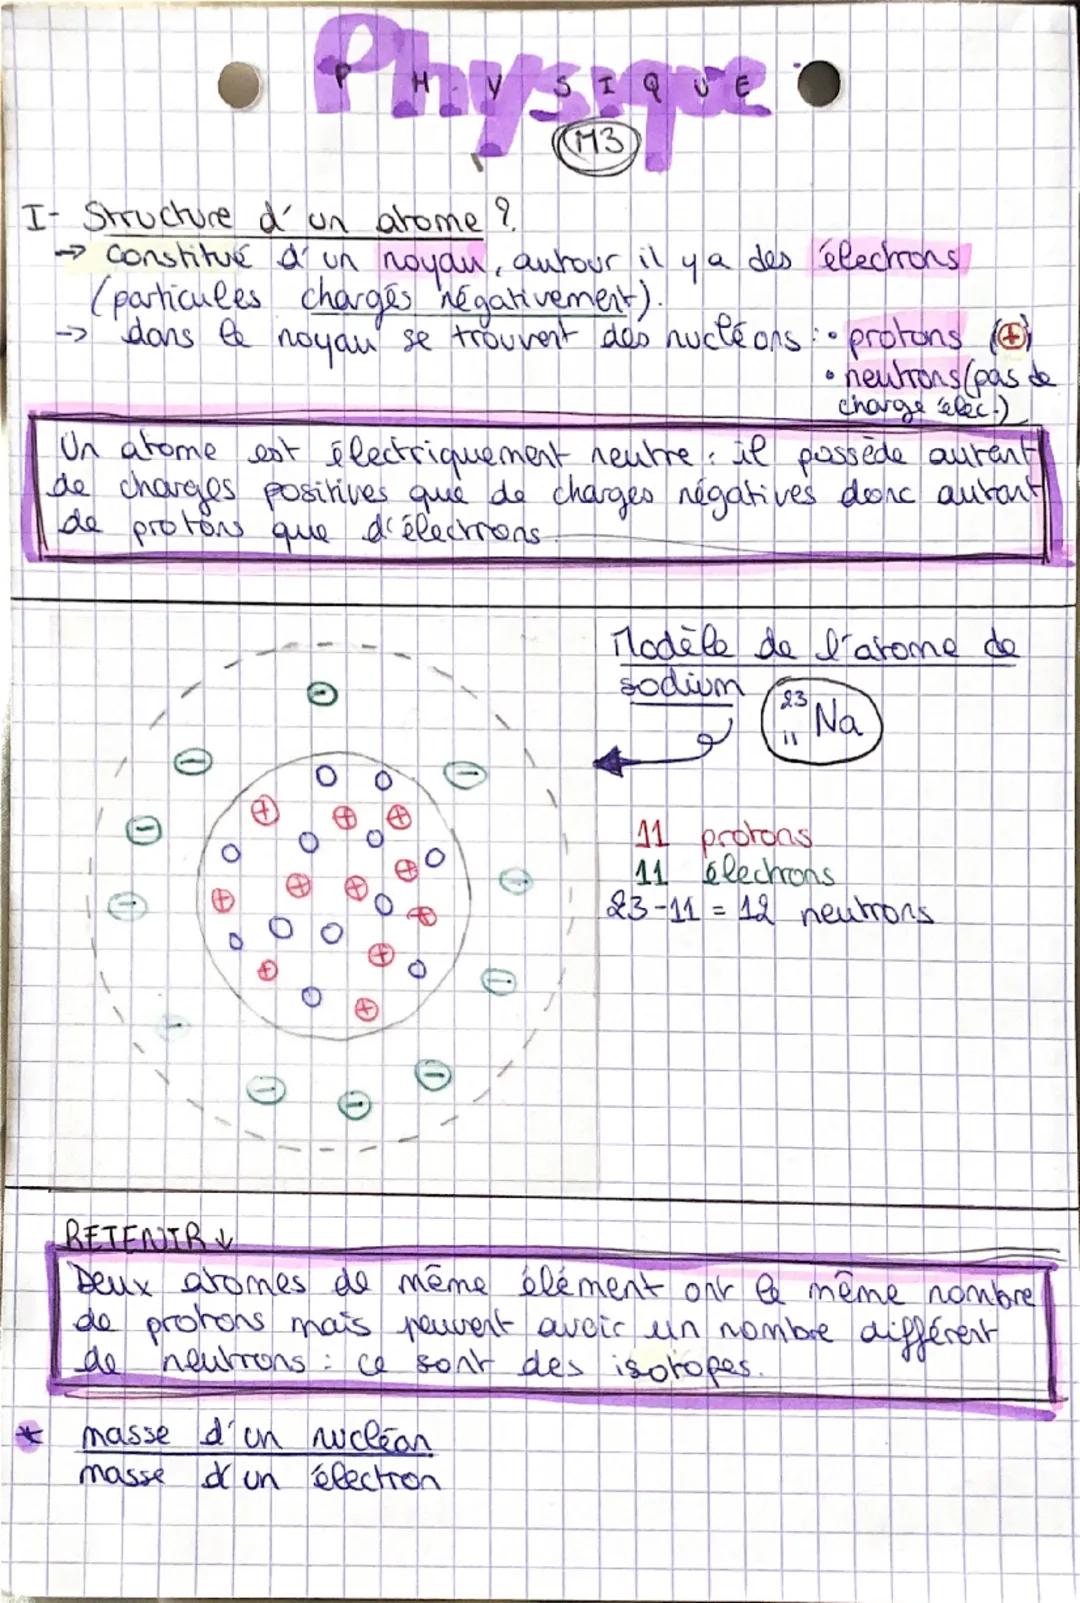 Physique
PHYSIQUE
M3
I- Structure d'un atome ?
→ constitué d'un noyau, autour il y a des électrons
(particules chargés négativement).
→ dans le noyau se trouvent des nucléons : • protons (+)
• neutrons (pas de
charge élec.)
Un atome est électriquement neutre : il possède autant
de charges positives que de charges négatives donc autant
de protons que d'électrons.
Modèle de l'atome de
sodium
23
11 Na
11 protons
11 électrons
23-11 = 12 neutrons
RETENIR ↓
Deux atomes de même élément ont le même nombre
de protons mais peuvent avoir un nombre différent
de neutrons : ce sont des isotopes.
* masse d'un nucléon
masse d'un électron